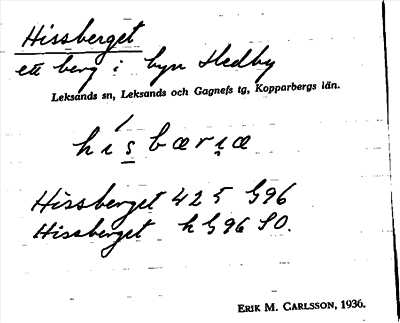 Hissberget
ett berg i byn Hedby
Leksands sn, Leksands och Gagnefs tg, Kopparbergs län.
hísbæriæ
Hissberget 425 G96
Hissberget h G96 SO.
ERIK M. CARLSSON, 1936.